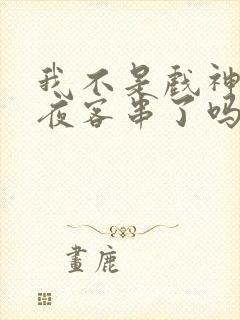 我不是戲神
夜客串了吗
畫鹿